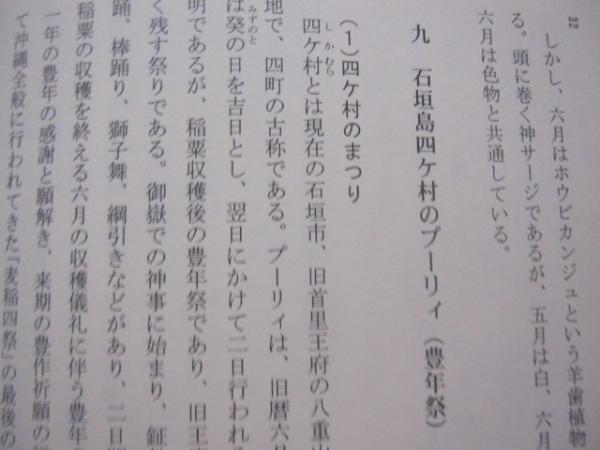 32
しかし、六月はホウビカンジュという羊歯植物
る。頭に巻く神サージであるが、五月は白、六月
六月は色物と共通している。
九 石垣島四ケ村のプーリィ(豊年祭)
(1)四ケ村のまつり
四ケ村とは現在の石垣市、旧首里王府の八重山
しかむら
地で、四町の古称である。プーリィは、旧暦六月
は癸の日を吉日とし、翌日にかけて二日行われる
みずのと
明であるが、稲粟収穫後の豊年祭であり、旧王
く残す祭りである。御嶽での神事に始まり、鉦
踊り、棒踊り、獅子舞、綱引きなどがあり、二日
稲粟の収穫を終える六月の収穫儀礼に伴う豊年
一年の豊年の感謝と願解き、来期の豊作祈願の
て沖縄全般に行われてきた「麦稲四祭」の最後の